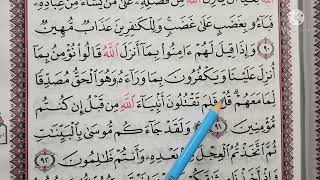 فَضْلِهِۦ عَلَىٰ مَن يَشَآءُ مِنْ عِبَادِهِۦ
فَبَآءُو بِغَضَبٍ عَلَىٰ غَضَبٍ وَلِلْكَٰفِرِينَ عَذَابٌ مُّهِينٌ
٩٠ وَإِذَا قِيلَ لَهُمْ ءَامِنُوا۟ بِمَآ أَنزَلَ ٱللَّهُ قَالُوا۟ نُؤْمِنُ بِمَآ
أُنزِلَ عَلَيْنَا وَيَكْفُرُونَ بِمَا وَرَآءَهُۥ وَهُوَ ٱلْحَقُّ مُصَدِّقًا
لِّمَا مَعَهُمْ ۗ قُلْ فَلِمَ تَقْتُلُونَ أَنۢبِيَآءَ ٱللَّهِ مِن قَبْلُ إِن كُنتُم
مُّؤْمِنِينَ ٩١ وَلَقَدْ جَآءَكُم مُّوسَىٰ بِٱلْبَيِّنَٰتِ
ثُمَّ ٱتَّخَذْتُمُ ٱلْعِجْلَ مِنۢ بَعْدِهِۦ وَأَنتُمْ ظَٰلِمُونَ ٩٢